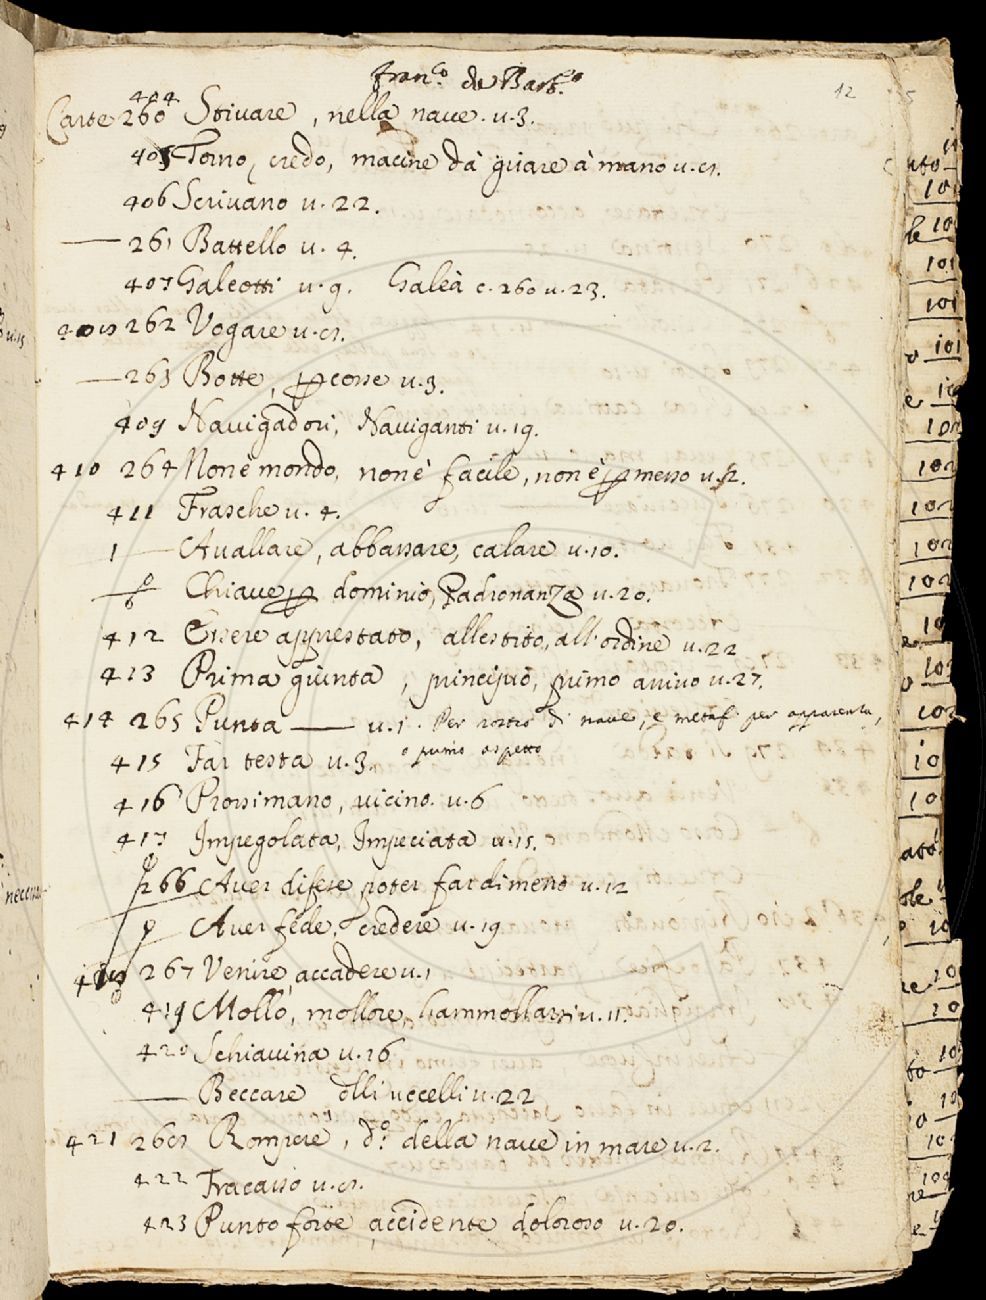 Fran.co da Barb.o
12
404
Carte 260 Stivare, nella nave. v. 3.
405 Torno, credo, macine da girare à mano v. 8.
406 Scrivano v. 22.
— 261 Battello v. 4.
407 Galeotti v. 9. Galèa c. 260 v. 23.
408 262 Vogare v. 8.
— 263 Botte, percosse v. 3.
409 Navigadori, Naviganti v. 19.
410 264 Non è mondo, non è facile, non è permesso v. 2.
411 Frasche v. 4.
1 — Avallare, abbassare, calare v. 10.
Chiave per dominio, Padronanza v. 20.
412 Essere apprestato, allestito, all'ordine v. 22
413 Prima giunta, principio, primo arrivo v. 27.
414 265 Punta — v. 1. Per rostro di nave, e metaf. per apparenta,
o primo aspetto
415 Far testa v. 3.
416 Prossimano, vicino. v. 6
417 Impegolata, Impeciata v. 15.
266 Aver difese, poter far di meno v. 12
Aver fede, credere v. 19
418 267 Venire, accadere v. 1
419 Mollo, mollore, hammollarsi v. 11.
420 Schiavina v. 16
— Beccare olli uccelli v. 22
421 268 Rompere, d.o della nave in mare v. 2.
422 Fracasso v. 8.
423 Punto forte, accidente doloroso v. 20.